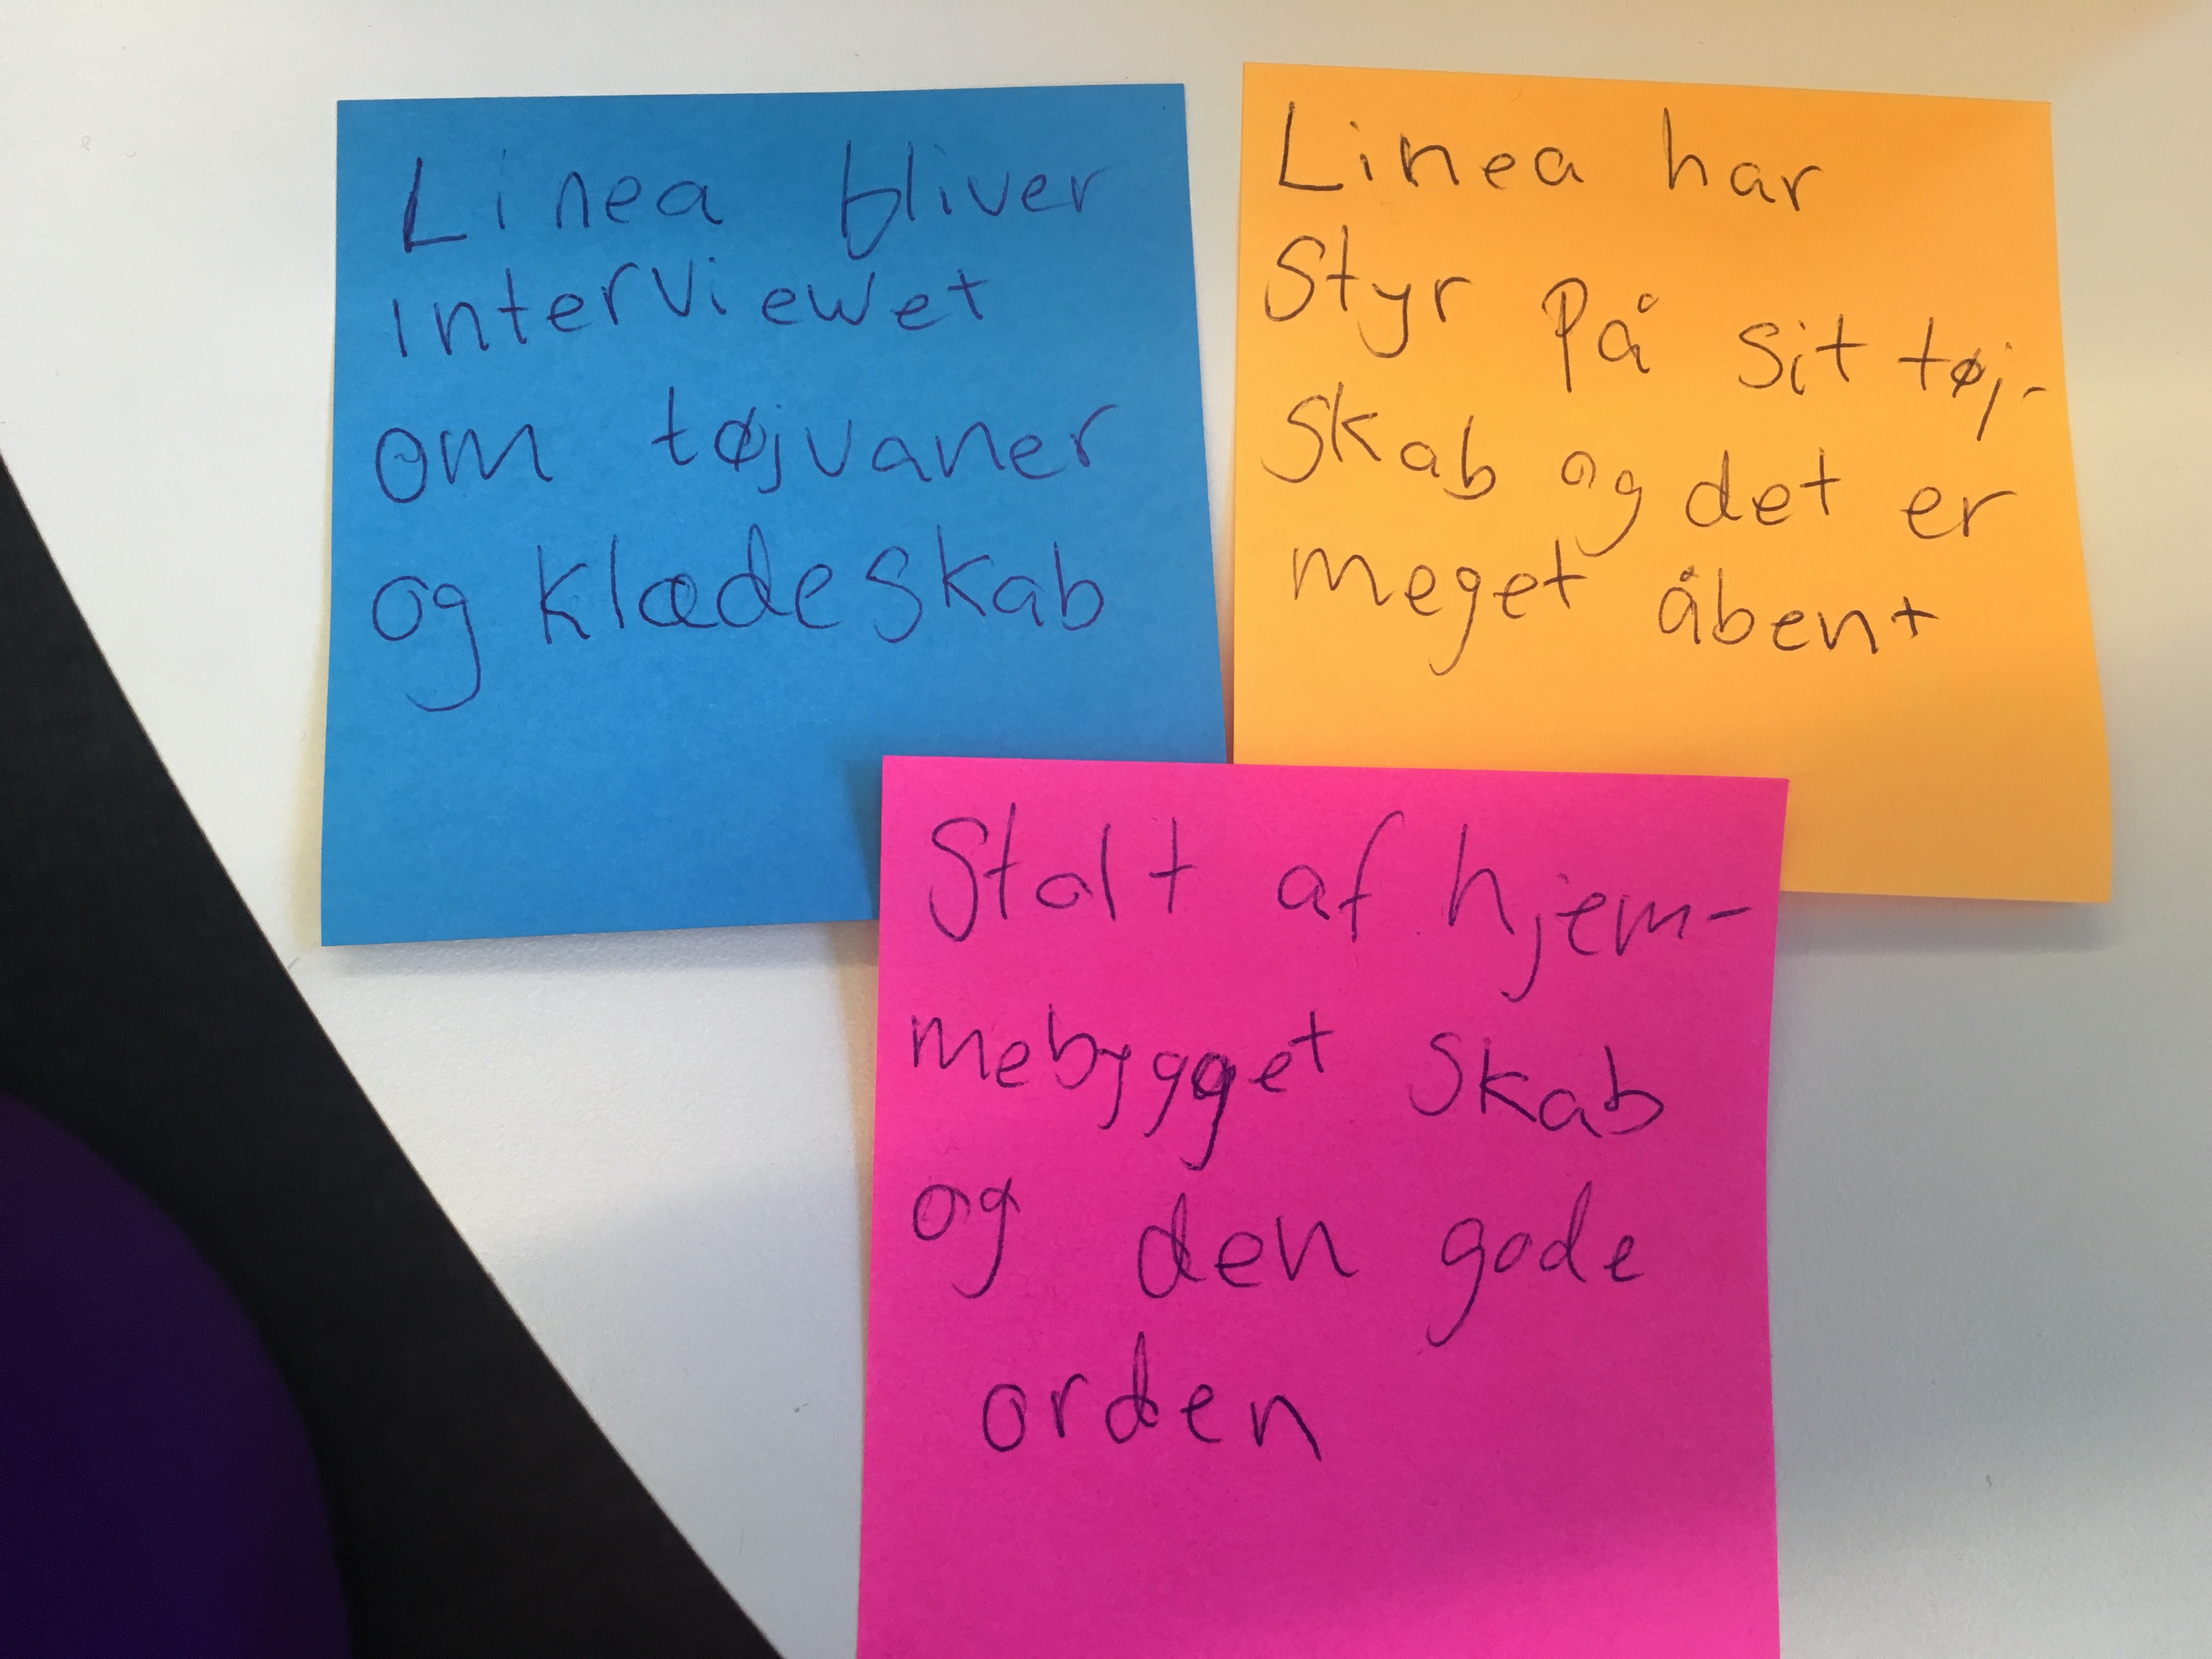 Linea bliver
interviewet
om tøjvaner
og klædeskab
Linea har
Styr på sit tøj-
skab og det er
meget åbent
Stolt af hjem-
mebygget skab
og den gode
orden